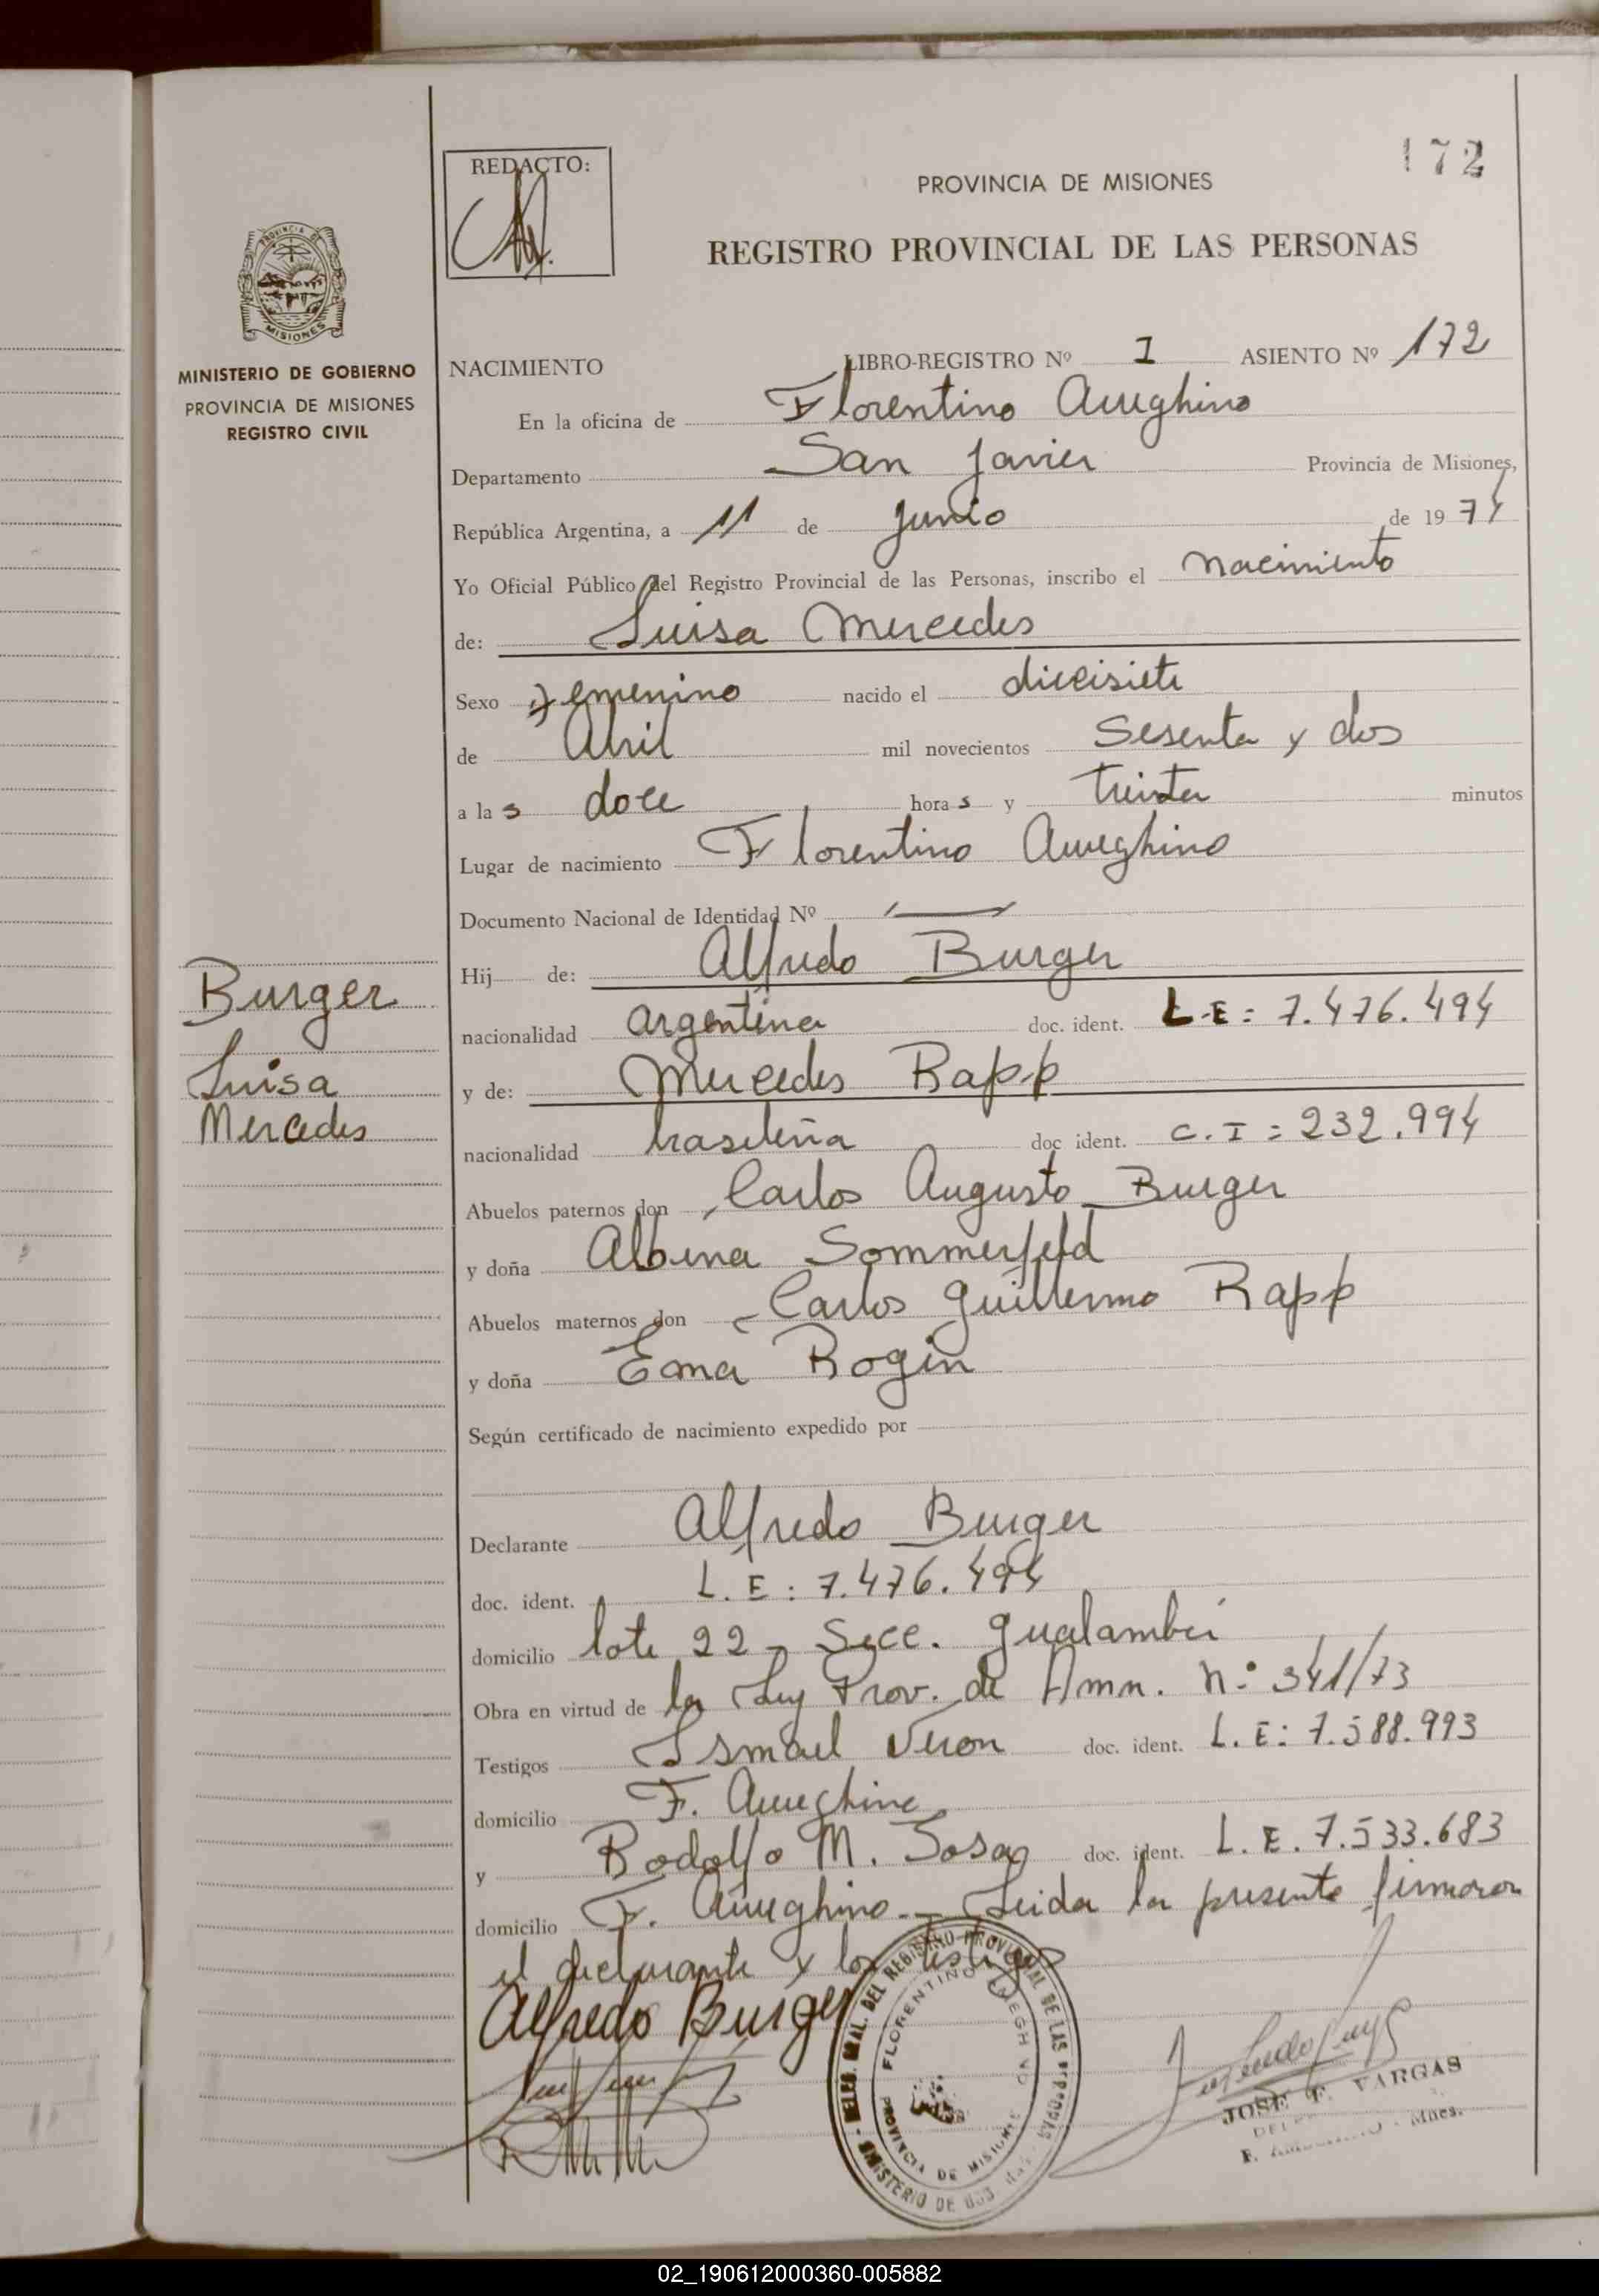 172
REDACTO:
PROVINCIA DE MISIONES
REGISTRO PROVINCIAL DE LAS PERSONAS
PROVINCIA DE
MISIONES
MINISTERIO DE GOBIERNO
PROVINCIA DE MISIONES
REGISTRO CIVIL
NACIMIENTO LIBRO-REGISTRO Nº 1 ASIENTO Nº 172
En la oficina de Florentino Ameghino
Departamento San Javier Provincia de Misiones,
República Argentina, a 11 de Junio de 1974
Yo Oficial Público del Registro Provincial de las Personas, inscribo el nacimiento
de: Luisa Mercedes
Sexo Femenino nacido el diecisiete
de Abril mil novecientos Sesenta y dos
a las doce horas y treinta minutos
Lugar de nacimiento Florentino Ameghino
Documento Nacional de Identidad Nº —
Hij de: Alfredo Burger
nacionalidad argentina doc. ident. L.E: 7.476.494
y de: Mercedes Rapp
nacionalidad brasileña doc ident. C.I: 232.994
Burger
Luisa
Mercedes
Abuelos paternos don Carlos Augusto Burger
y doña Albina Sommerfeld
Abuelos maternos don Carlos Guillermo Rapp
y doña Ema Rogin
Según certificado de nacimiento expedido por
Declarante Alfredo Burger
doc. ident. L.E: 7.476.494
domicilio lote 22 - Secc. Gualambú
Obra en virtud de la Ley Prov. de Amn. n: 341/73
Testigos Ismael Veron doc. ident. L.E: 7.588.993
domicilio F. Ameghino
y Rodolfo M. Sosa doc. ident. L.E. 7.533.683
domicilio F. Ameghino - Leida la presente firmaron
el declarante y los testigos
Alfredo Burger
DEL REGISTRO PROVINCIAL DE LAS PERSONAS
FLORENTINO AMEGHINO
PROVINCIA DE MISIONES
MINISTERIO DE GOB
JOSE F. VARGAS
F. Mnes.
02_190612000360-005882